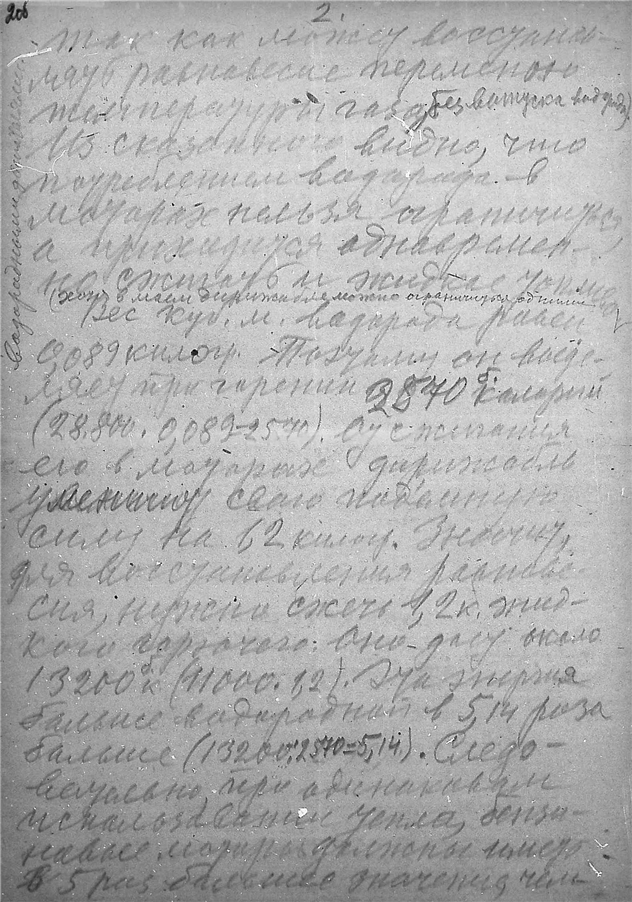 206
2.
так как может восстанов-
лять равновесие переменою
температуры газа, без выпуска водорода)
Из сказанного видно, что
потреблением водорода в
моторах нельзя ограничиться,
а приходится одновремен-
но сжигать и жидкое топливо
(хотя в моем дирижабле можно ограничиться одним
водородным
Вес куб. м. водорода равен
0,089 килогр. Поэтому он выде-
ляет при горении 2570 б. калорий
(28.800. 0,089=2570). От сжигания
его в моторах дирижабль
уменьшит свою подъемную
силу на 1,2 килог. Значит,
для восстановления равнове-
сия, нужно сжечь 1,2 к. жид-
кого горючего. Оно даст около
13200 б к (11000. 1,2). Эта энергия
больше водородной в 5,14 раза
больше (13200:2570=5,14). Следо-
вательно, при одинаковом
использовании тепла, бензи-
новые моторы должны иметь
в 5 раз большее значение, чем